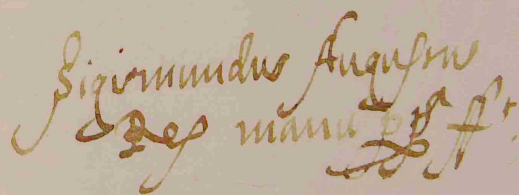 Sigismundus Augustus
Rex manu